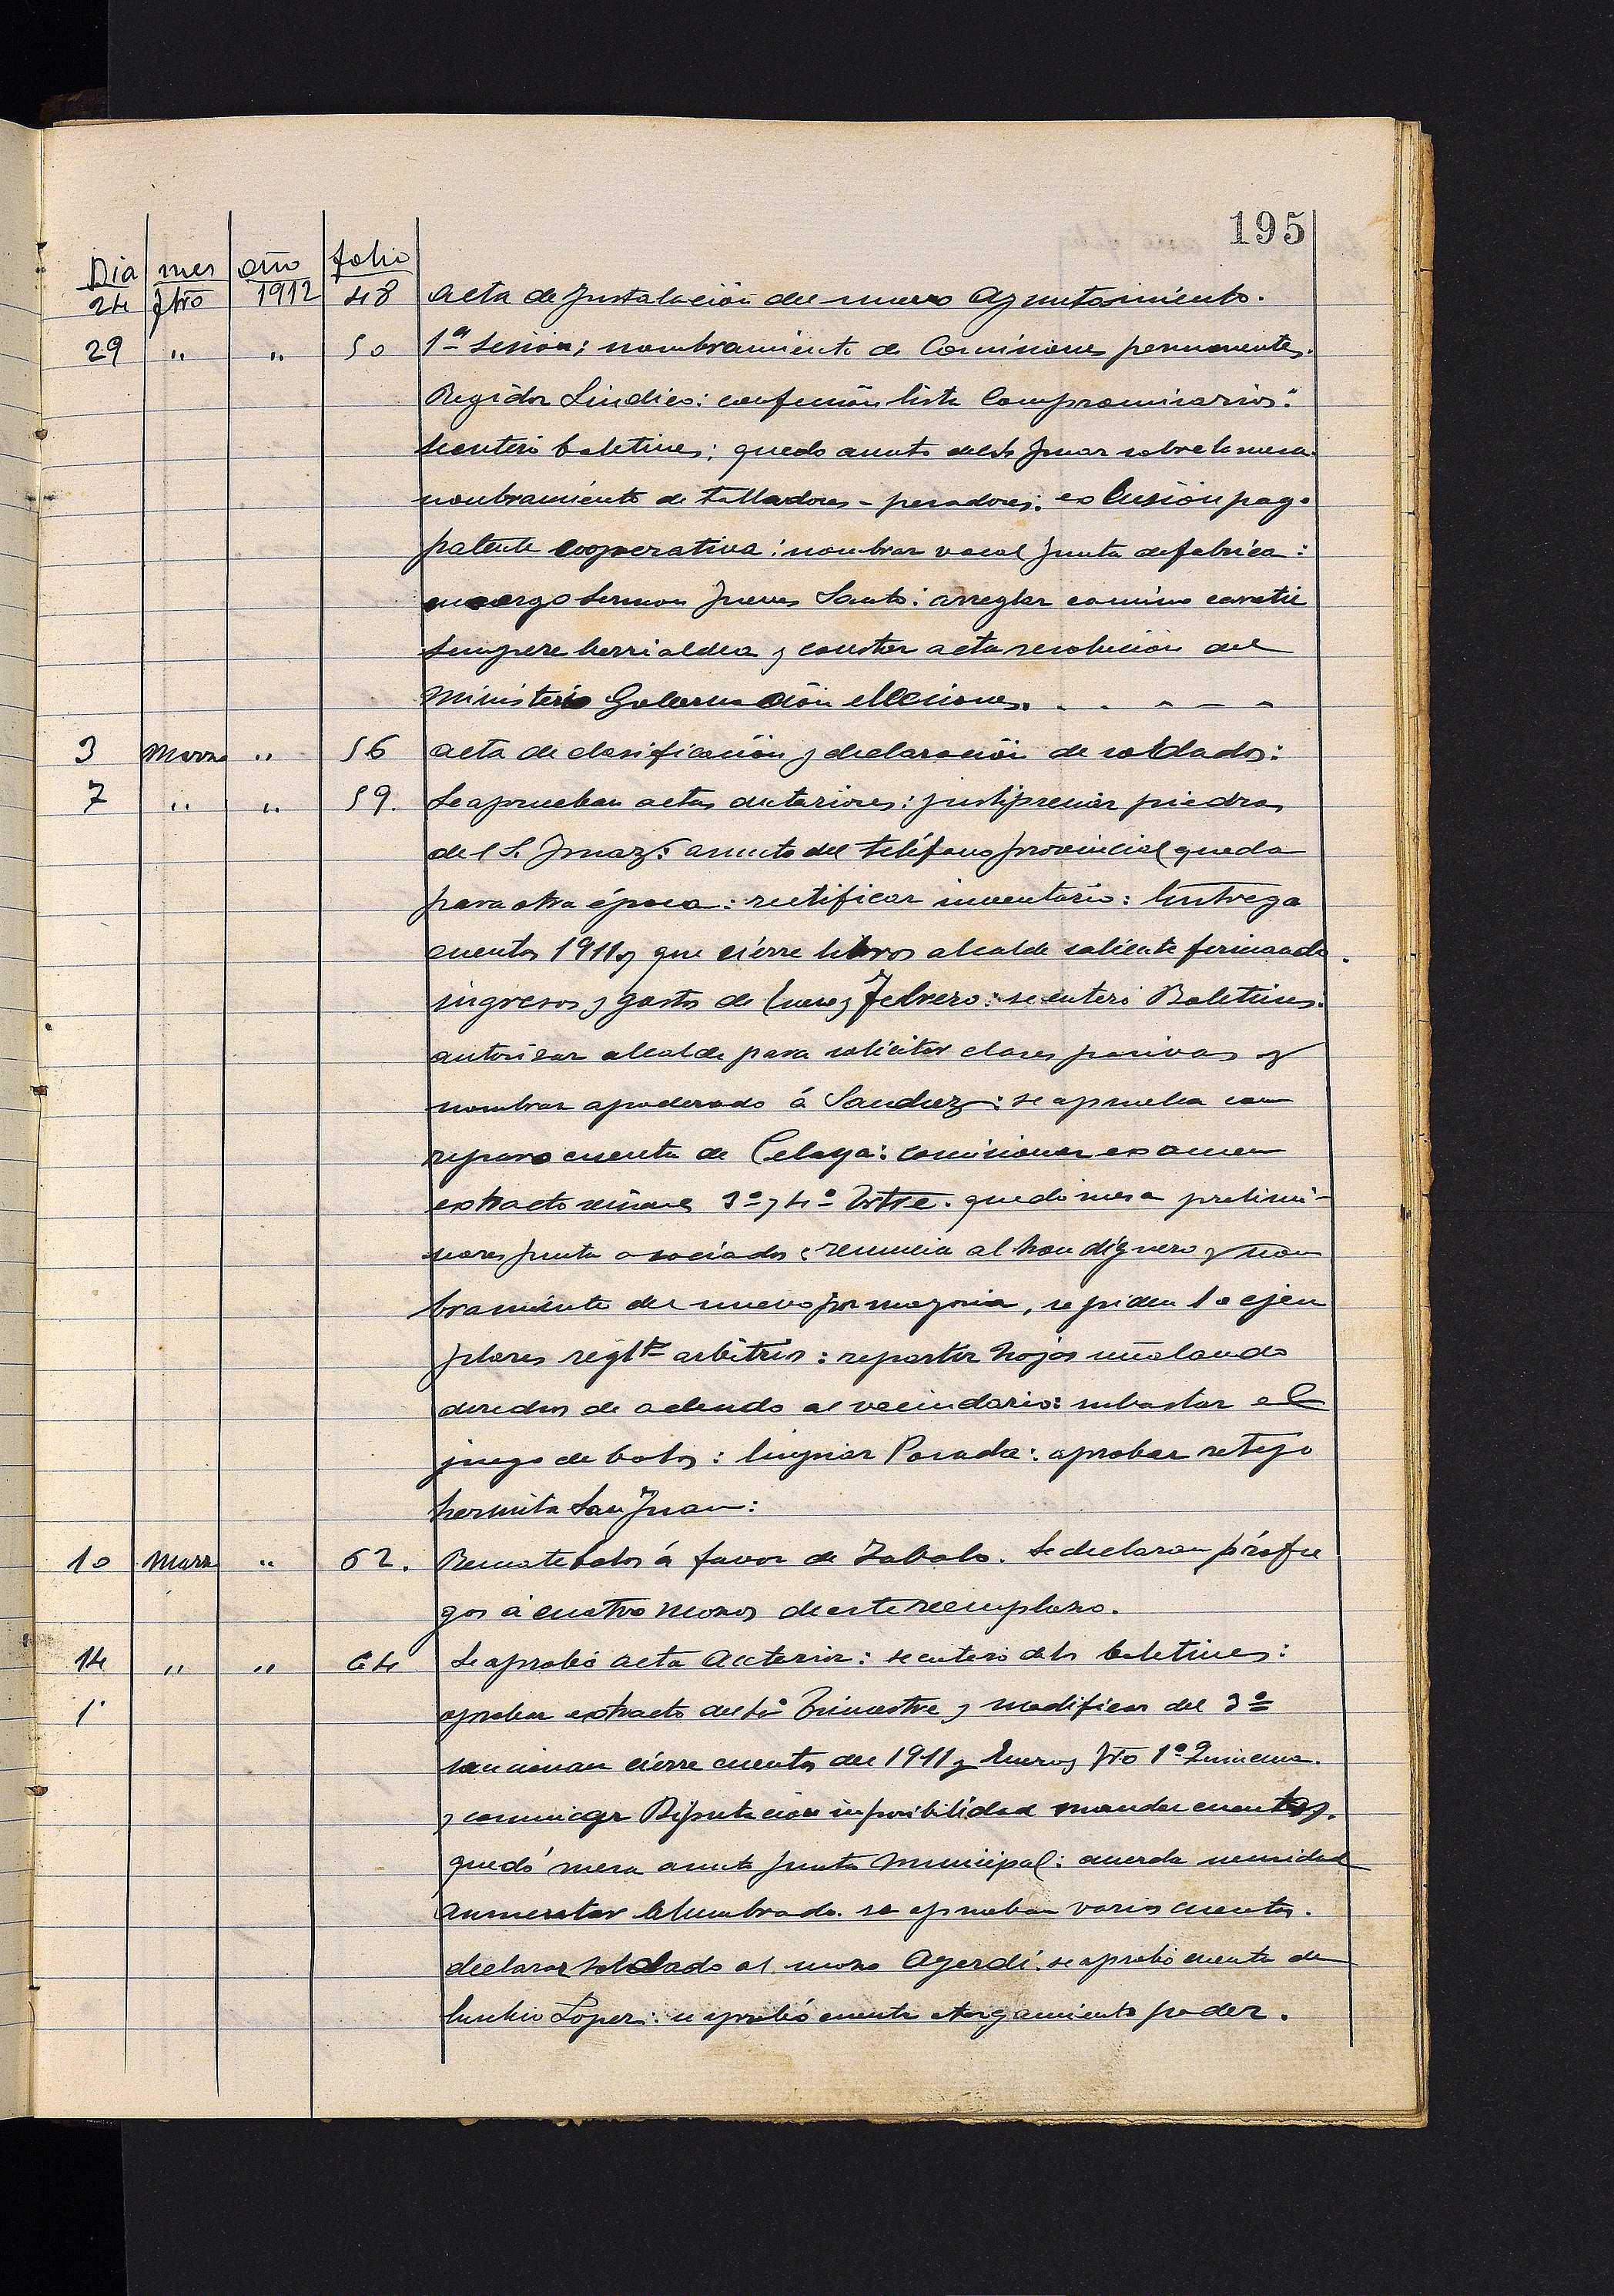 195
Dia mes año folio
24 fbro 1912 48 Acta de Instalación del nuevo Ayuntamiento.
29 " " 50 1ª sesion; nombramiento de Comisiones permanentes.
Regidor Sindico: confección lista Compromisarios:
se enteró boletines; quedo asunto del Sr Imaz sobre la mesa.
nombramiento de talladores - pesadores: exclusión pago
patente cooperativa: nombrar vocal Junta de fabrica:
encargo Sermon Jueves Santo: arreglar camino carretil
Sempere berrialdea y constar acta resolución del
Ministerio Gobernación elecciones. . . . - - -
3 Marzo " 56 Acta de clasificación y declaración de soldados:
7 " " 59. Se aprueban actas anteriores: justipreciar piedras
del S. Imaz: asunto del teléfono provincial queda
para otra época: rectificar inventario: Entrega
cuentas 1911 y que cierre libros alcalde saliente formando
ingresos y gastos de Enero y Febrero: se enteró Boletines.
autorizar alcalde para solicitar clases pasivas y
nombrar apoderado á Sanchez: se aprueba con
reparo cuenta de Celaya: comisionar examen
extracto sesiones 3º y 4º Trtre. quedó mesa prelimi-
nares junta asociados: renuncia alhondiguero y nom
bramiento del nuevo por mayoria, se piden 10 ejem
plares reglto arbitrios: repartir hojas señalando
derechos de adeudo al vecindario: subastar el
juego de bolos: limpiar Parada: aprobar retejo
hermita San Juan:
10 Marzo " 62. Remate bolos á favor de Zabala. Se declaran prófu
gos á cuatro mozos de este reemplazo.
14 " " 64 Se aprobó acta anterior: se enteró de los boletines:
1 aprobar extracto del 4º Trimestre y modificar del 3º
sancionan cierre cuentas del 1911 y Enero y fbro 1ª Quincena.
y comunicar Diputacion imposibilidad mandar cuentas.
quedó mesa asunto Junta Municipal: acuerda necesidad
aumentar Alumbrado. se aprueban varias cuentas.
declarar soldado al mozo Ayerdi: se aprobó cuenta de
Eusebio Lopez: se aprobó cuenta otorgamiento poder.